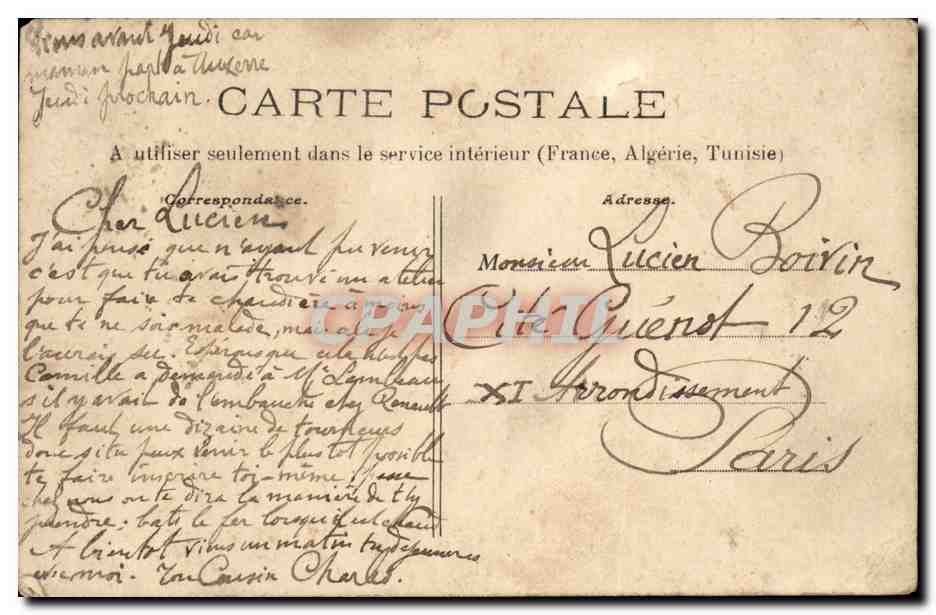 Viens avant Jeudi car
maman part à Auxerre
Jeudi prochain.
CARTE POSTALE
A utiliser seulement dans le service intérieur (France, Algérie, Tunisie)
Correspondance.
Cher Lucien
J'ai pensé que n'ayant pu venir
c'est que tu avais trouvé un atelier
pour faire de chaudière à moins
que tu ne sois malade, mais alors je
l'aurais su. Espérons que cela n'est pas
Camille a demandé à Mr Lambeau
s'il y avait de l'embauche chez Renault
Il faut une dizaine de tourneurs
donc si tu peux venir le plus tot possible
te faire inscrire toi-même, passe
chez nous on te dira la manière de t'y
prendre: bats le fer lorsqu'il est chaud
A bientot viens un matin tu déjeuneras
avec moi. Ton Cousin Charles.
Adresse.
Monsieur Lucien Boivin
Cité Guénot 12
XI Arrondissement
Paris
CPAPHIL